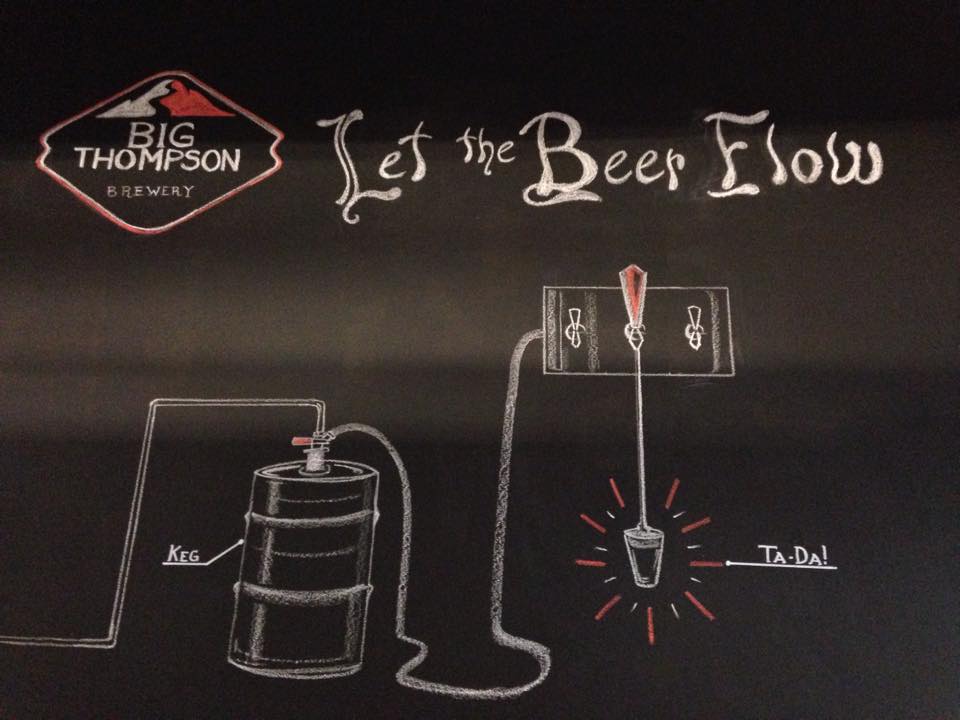 BIG
THOMPSON
BREWERY
Let the Beer Flow
KEG
TA-DA!